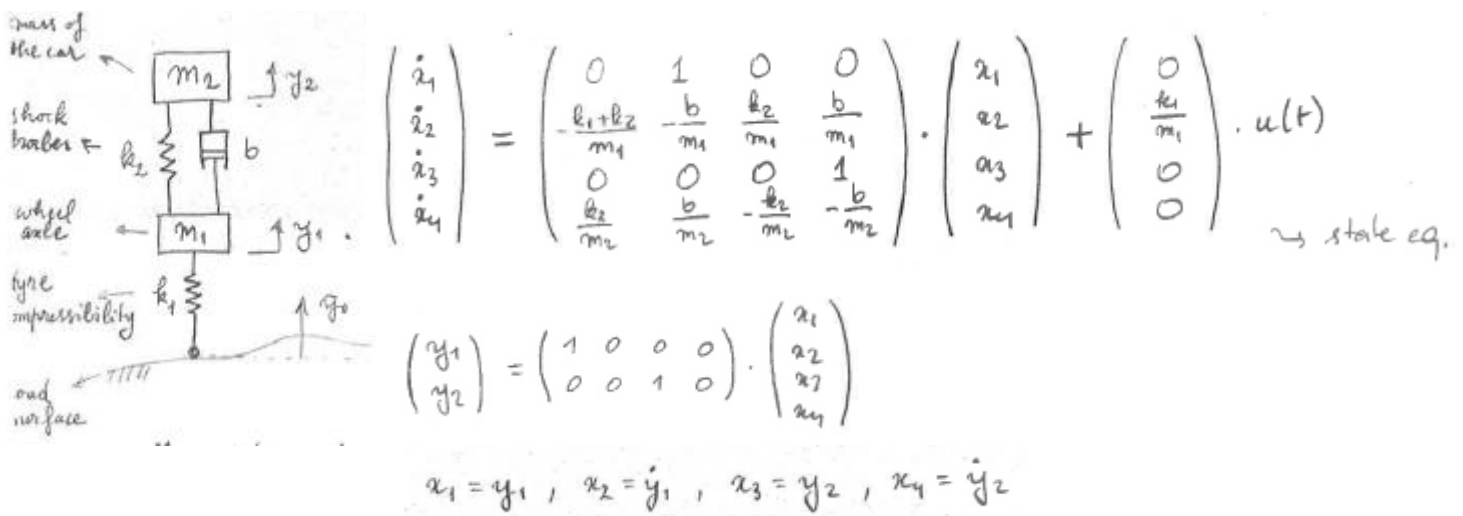 mass of
the car
m2
y2
shock
k2
b
wheel
axle
m1
y1
tyre
k1
y0
ẋ1
ẋ2
ẋ3
ẋ4
=
0 1 0 0
-(k1+k2)/m1 -b/m1 k2/m1 b/m1
0 0 0 1
k2/m2 b/m2 -k2/m2 -b/m2
·
x1
x2
x3
x4
+
0
k1/m1
0
0
· u(t)
↝ state eq.
y1
y2
=
1 0 0 0
0 0 1 0
·
x1
x2
x3
x4
x1 = y1 , x2 = ẏ1 , x3 = y2 , x4 = ẏ2